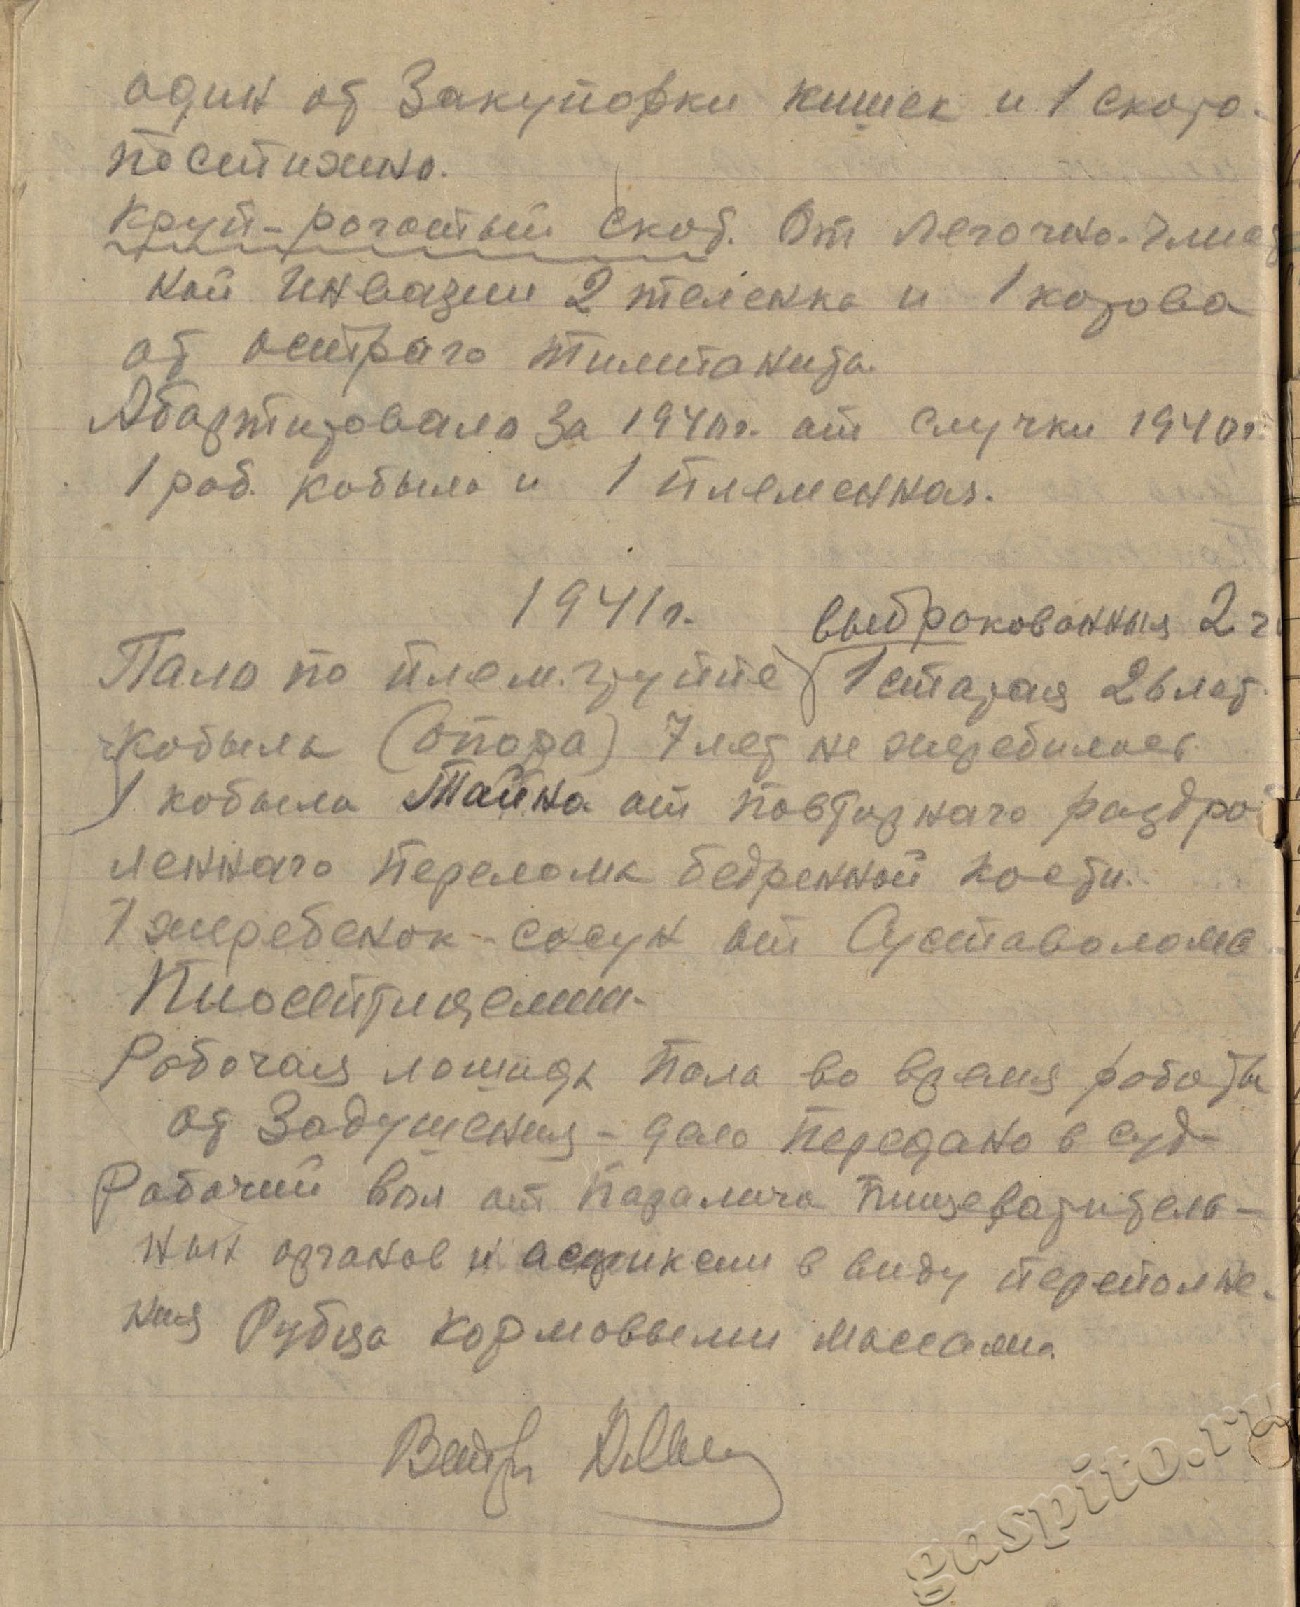 один от Закупорки кишек и 1 скоро-
постижно.
Круп-рогатый скот. От легочно-глист
ной Инвазии 2 теленка и 1 корова
от остраго тимпанита.
Абортировало За 1940г. от случки 1940г.
1 раб. кобыла и 1 племенная.
1941г.
выбракованныя 2 г.
Пало по плем. группе 1 старая 26 лет.
кобыла (Опора) 7 лет не жеребилась.
1 кобыла Тайна от повторнаго раздроб
леннаго перелома бедренной кости.
1 жеребенок-сосун от Суставолома
Пиосептицемии.
Рабочая лошадь пала во время работы
от Задушения - дело передано в суд-
Рабочий вол от паралича пищеваритель-
ных органов и асфиксии в виду переполне-
ния Рубца кормовыми массами.
gaspito.ru